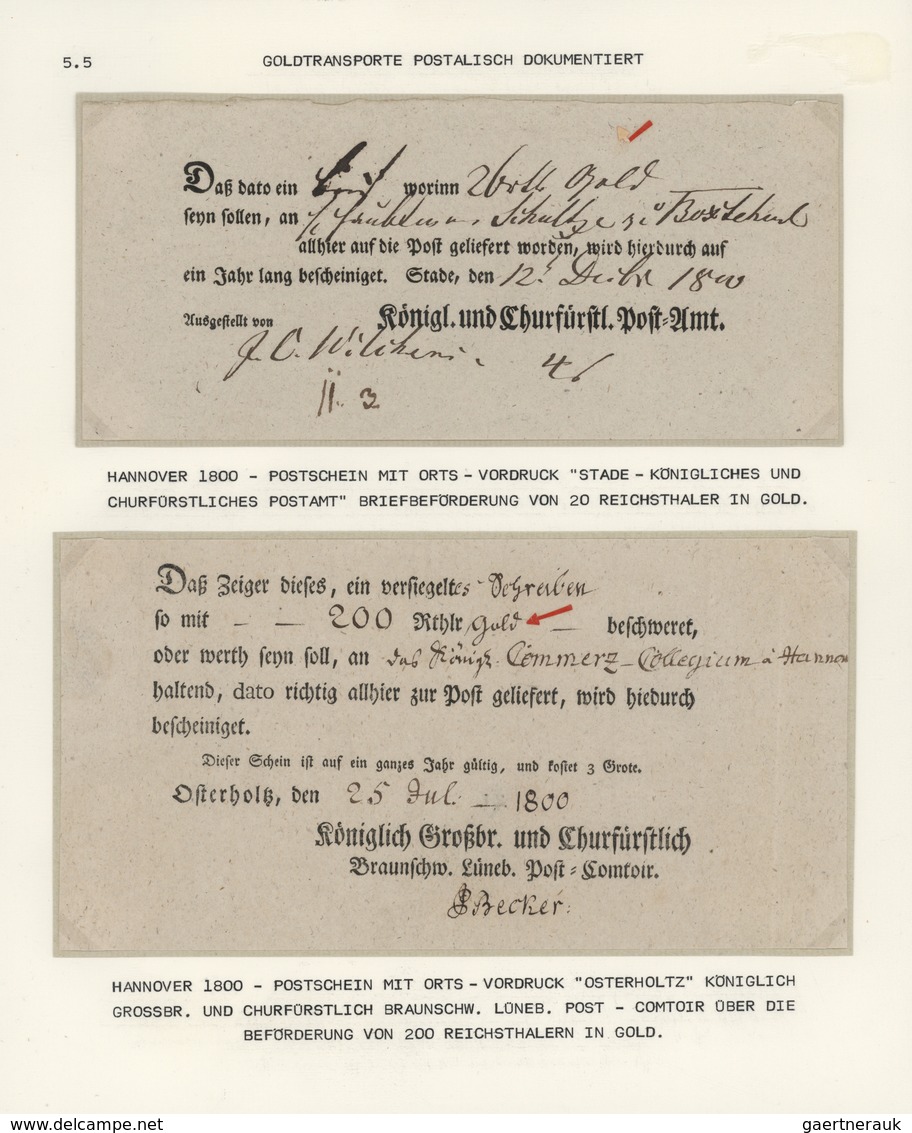 5.5 GOLDTRANSPORTE POSTALISCH DOKUMENTIERT
Daß dato ein Brief worinn Gold
seyn sollen, an Schultze Boxtehud
allhier auf die Post geliefert worden, wird hierdurch auf
ein Jahr lang bescheiniget. Stade, den 12. Decbr 1800
Ausgestellt von Königl. und Churfürstl. Post-Amt.
J. C. Wilckens 46
II. 3
HANNOVER 1800 - POSTSCHEIN MIT ORTS-VORDRUCK "STADE - KÖNIGLICHES UND
CHURFÜRSTLICHES POSTAMT" BRIEFBEFÖRDERUNG VON 20 REICHSTHALER IN GOLD.
Daß Zeiger dieses, ein versiegeltes Schreiben
so mit - - 200 Rthlr Gold - beschweret,
oder werth seyn soll, an das Königl. Commerz-Collegium a Hannov
haltend, dato richtig allhier zur Post geliefert, wird hiedurch
bescheiniget.
Dieser Schein ist auf ein ganzes Jahr gültig, und kostet 3 Grote.
Osterholtz, den 25 Jul. - 1800
Königlich Großbr. und Churfürstlich
Braunschw. Lüneb. Post-Comtoir.
Becker.
HANNOVER 1800 - POSTSCHEIN MIT ORTS-VORDRUCK "OSTERHOLTZ" KÖNIGLICH
GROSSBR. UND CHURFÜRSTLICH BRAUNSCHW. LÜNEB. POST - COMTOIR ÜBER DIE
BEFÖRDERUNG VON 200 REICHSTHALERN IN GOLD.
www.delcampe.net gaertnerauk